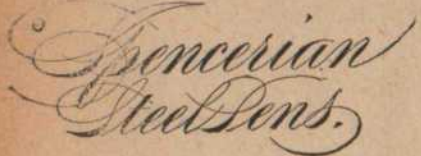 Spencerian
Steel Pens.